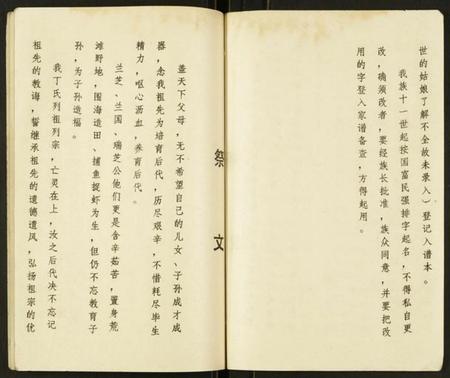 世的姑娘了解不全故未录入）登记入谱本。
我族十一世起按国富民强排字起名，不得私自更
改，确须改者，要经族长批准，族众同意，并要把改
用的字登入家谱备查，方得起用。
祭文
盖天下父母，无不希望自己的儿女、子孙成才成
器，念我祖先为培育后代，历尽艰辛，不惜耗尽毕生
精力，呕心沥血，养育后代。
兰芝、兰国、瑞芝公他们更是含辛茹苦，置身荒
滩野地，围海造田、捕鱼捉虾为生，但仍不忘教育子
孙，为子孙造福。
我丁氏列祖列宗，亡灵在上，汝之后代决不忘记
祖先的教诲，誓继承祖先的遗德遗风，弘扬祖宗的优